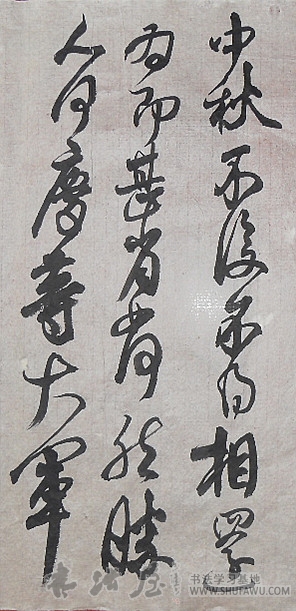 中秋不復不得相還
為即甚省如何然勝
人何慶等大軍
书法屋
书法学习基地
WWW.SHUFAWU.COM